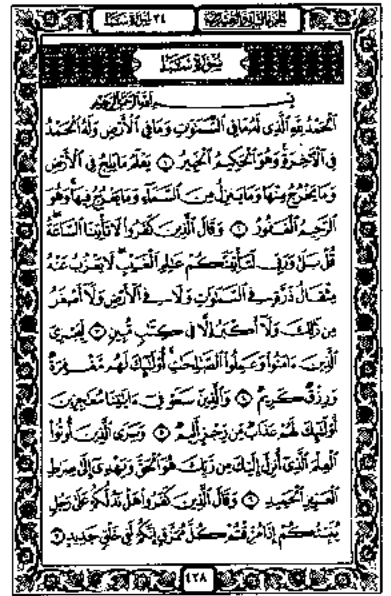 الجزء الثاني والعشرون
٣٤ سورة سبأ
سورة سبأ
بِسْمِ اللَّهِ الرَّحْمَٰنِ الرَّحِيمِ
الْحَمْدُ لِلَّهِ الَّذِي لَهُ مَا فِي السَّمَٰوَٰتِ وَمَا فِي الْأَرْضِ وَلَهُ الْحَمْدُ
فِي الْآخِرَةِ وَهُوَ الْحَكِيمُ الْخَبِيرُ ١ يَعْلَمُ مَا يَلِجُ فِي الْأَرْضِ
وَمَا يَخْرُجُ مِنْهَا وَمَا يَنزِلُ مِنَ السَّمَاءِ وَمَا يَعْرُجُ فِيهَا وَهُوَ
الرَّحِيمُ الْغَفُورُ ٢ وَقَالَ الَّذِينَ كَفَرُوا لَا تَأْتِينَا السَّاعَةُ
قُلْ بَلَىٰ وَرَبِّي لَتَأْتِيَنَّكُمْ عَٰلِمِ الْغَيْبِ لَا يَعْزُبُ عَنْهُ
مِثْقَالُ ذَرَّةٍ فِي السَّمَٰوَٰتِ وَلَا فِي الْأَرْضِ وَلَا أَصْغَرُ
مِن ذَٰلِكَ وَلَا أَكْبَرُ إِلَّا فِي كِتَٰبٍ مُّبِينٍ ٣ لِّيَجْزِيَ
الَّذِينَ ءَامَنُوا وَعَمِلُوا الصَّٰلِحَٰتِ أُولَٰئِكَ لَهُم مَّغْفِرَةٌ
وَرِزْقٌ كَرِيمٌ ٤ وَالَّذِينَ سَعَوْ فِي ءَايَٰتِنَا مُعَٰجِزِينَ
أُولَٰئِكَ لَهُمْ عَذَابٌ مِّن رِّجْزٍ أَلِيمٌ ٥ وَيَرَى الَّذِينَ أُوتُوا
الْعِلْمَ الَّذِي أُنزِلَ إِلَيْكَ مِن رَّبِّكَ هُوَ الْحَقَّ وَيَهْدِي إِلَىٰ صِرَٰطِ
الْعَزِيزِ الْحَمِيدِ ٦ وَقَالَ الَّذِينَ كَفَرُوا هَلْ نَدُلُّكُمْ عَلَىٰ رَجُلٍ
يُنَبِّئُكُمْ إِذَا مُزِّقْتُمْ كُلَّ مُمَزَّقٍ إِنَّكُمْ لَفِي خَلْقٍ جَدِيدٍ ٧
٤٢٨